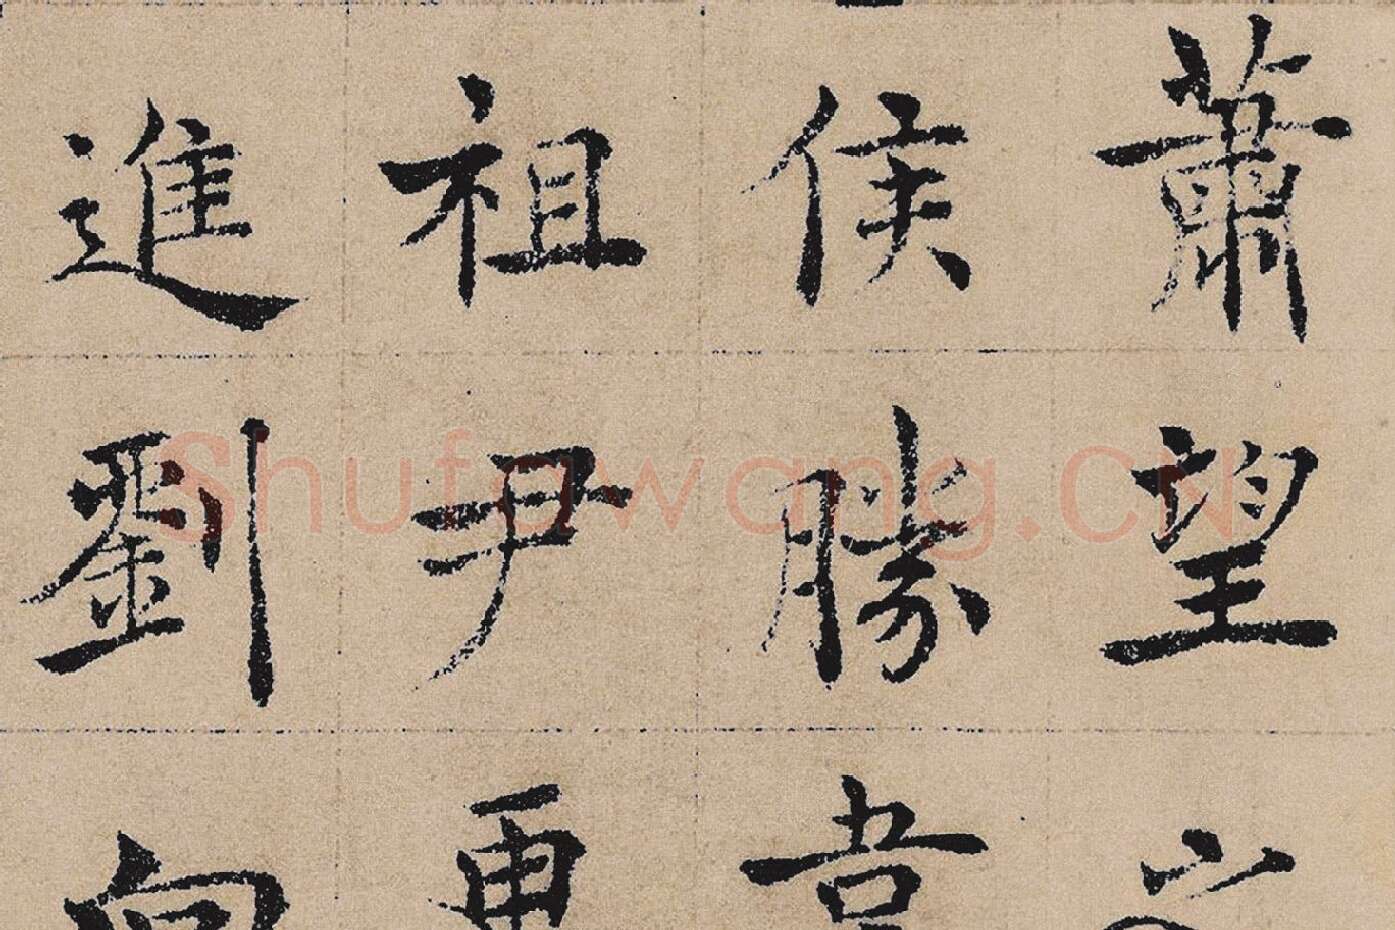 蕭望之
侯勝韋
祖尹更
進劉向
Shufawang.CN